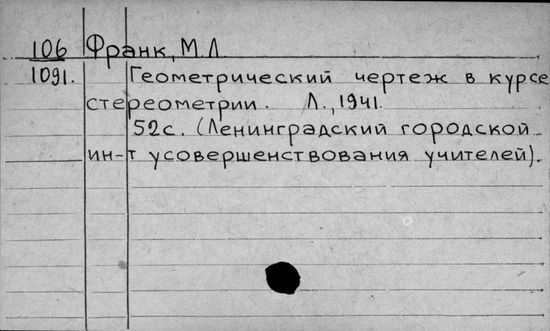 106 Франк, М.Л.
1091. Геометрический чертеж в курсе
стереометрии. Л., 1941.
52с. (Ленинградский городской
ин-т усовершенствования учителей).